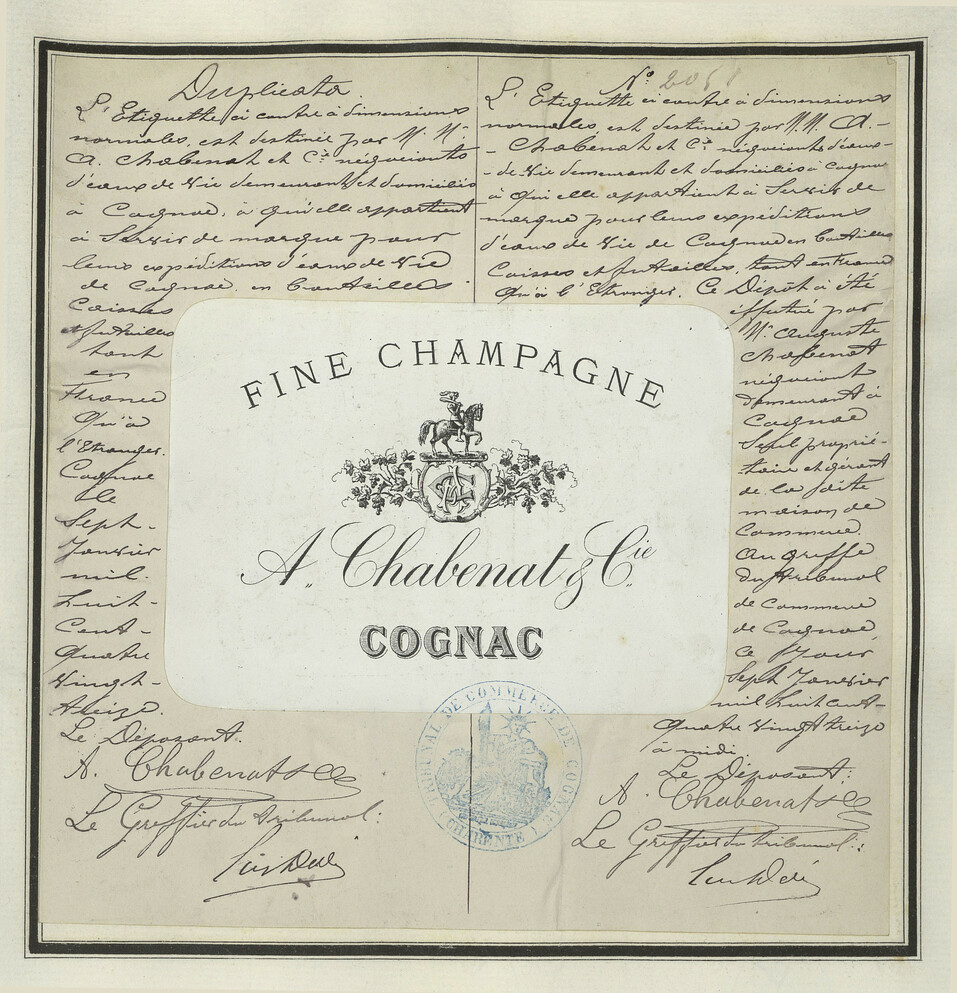 Duplicata.
L'Etiquette ci contre à dimensions
normales, est destinée par M. M.
A. Chabenat et Cie négociants
d'eaux de Vie demeurant et domiciliés
à Cognac, à qui elle appartient
à Servir de marque pour
leurs expéditions d'eaux de Vie
de Cognac en bouteilles
Caisses
et futailles
tant
en
France
Qu'à
l'Etranger.
Cognac
le
Sept-
Janvier
mil.
huit-
Cent-
Quatre
Vingt-
treize.
Le Déposant.
A. Chabenat & Co
Le Greffier du tribunal:
No 205
L'Etiquette ci contre à dimensions
normales, est destinée par M. M. A. -
- Chabenat et Cie négociants d'eaux -
- de Vie demeurant et domiciliés à Cognac
à qui elle appartient à Servir de
marque pour leurs expéditions
d'eaux de Vie de Cognac en bouteilles
Caisses et futailles, tant en France
Qu'à l'Etranger. Ce Dépôt a été
effectué par
Mr. Auguste
Chabenat
négociant
demeurant à
Cognac
Seul proprié-
taire et gérant
de la Ditte
maison de
Commerce.
Au Greffe
du tribunal
de Commerce
de Cognac,
Ce Jour
Sept Janvier
mil huit cent-
Quatre Vingt treize
à midi.
Le Déposant:
A. Chabenat & Co
Le Greffier du tribunal:
FINE CHAMPAGNE
AC
A. Chabenat & Cie
COGNAC
TRIBUNAL DE COMMERCE DE COGNAC
(CHARENTE)